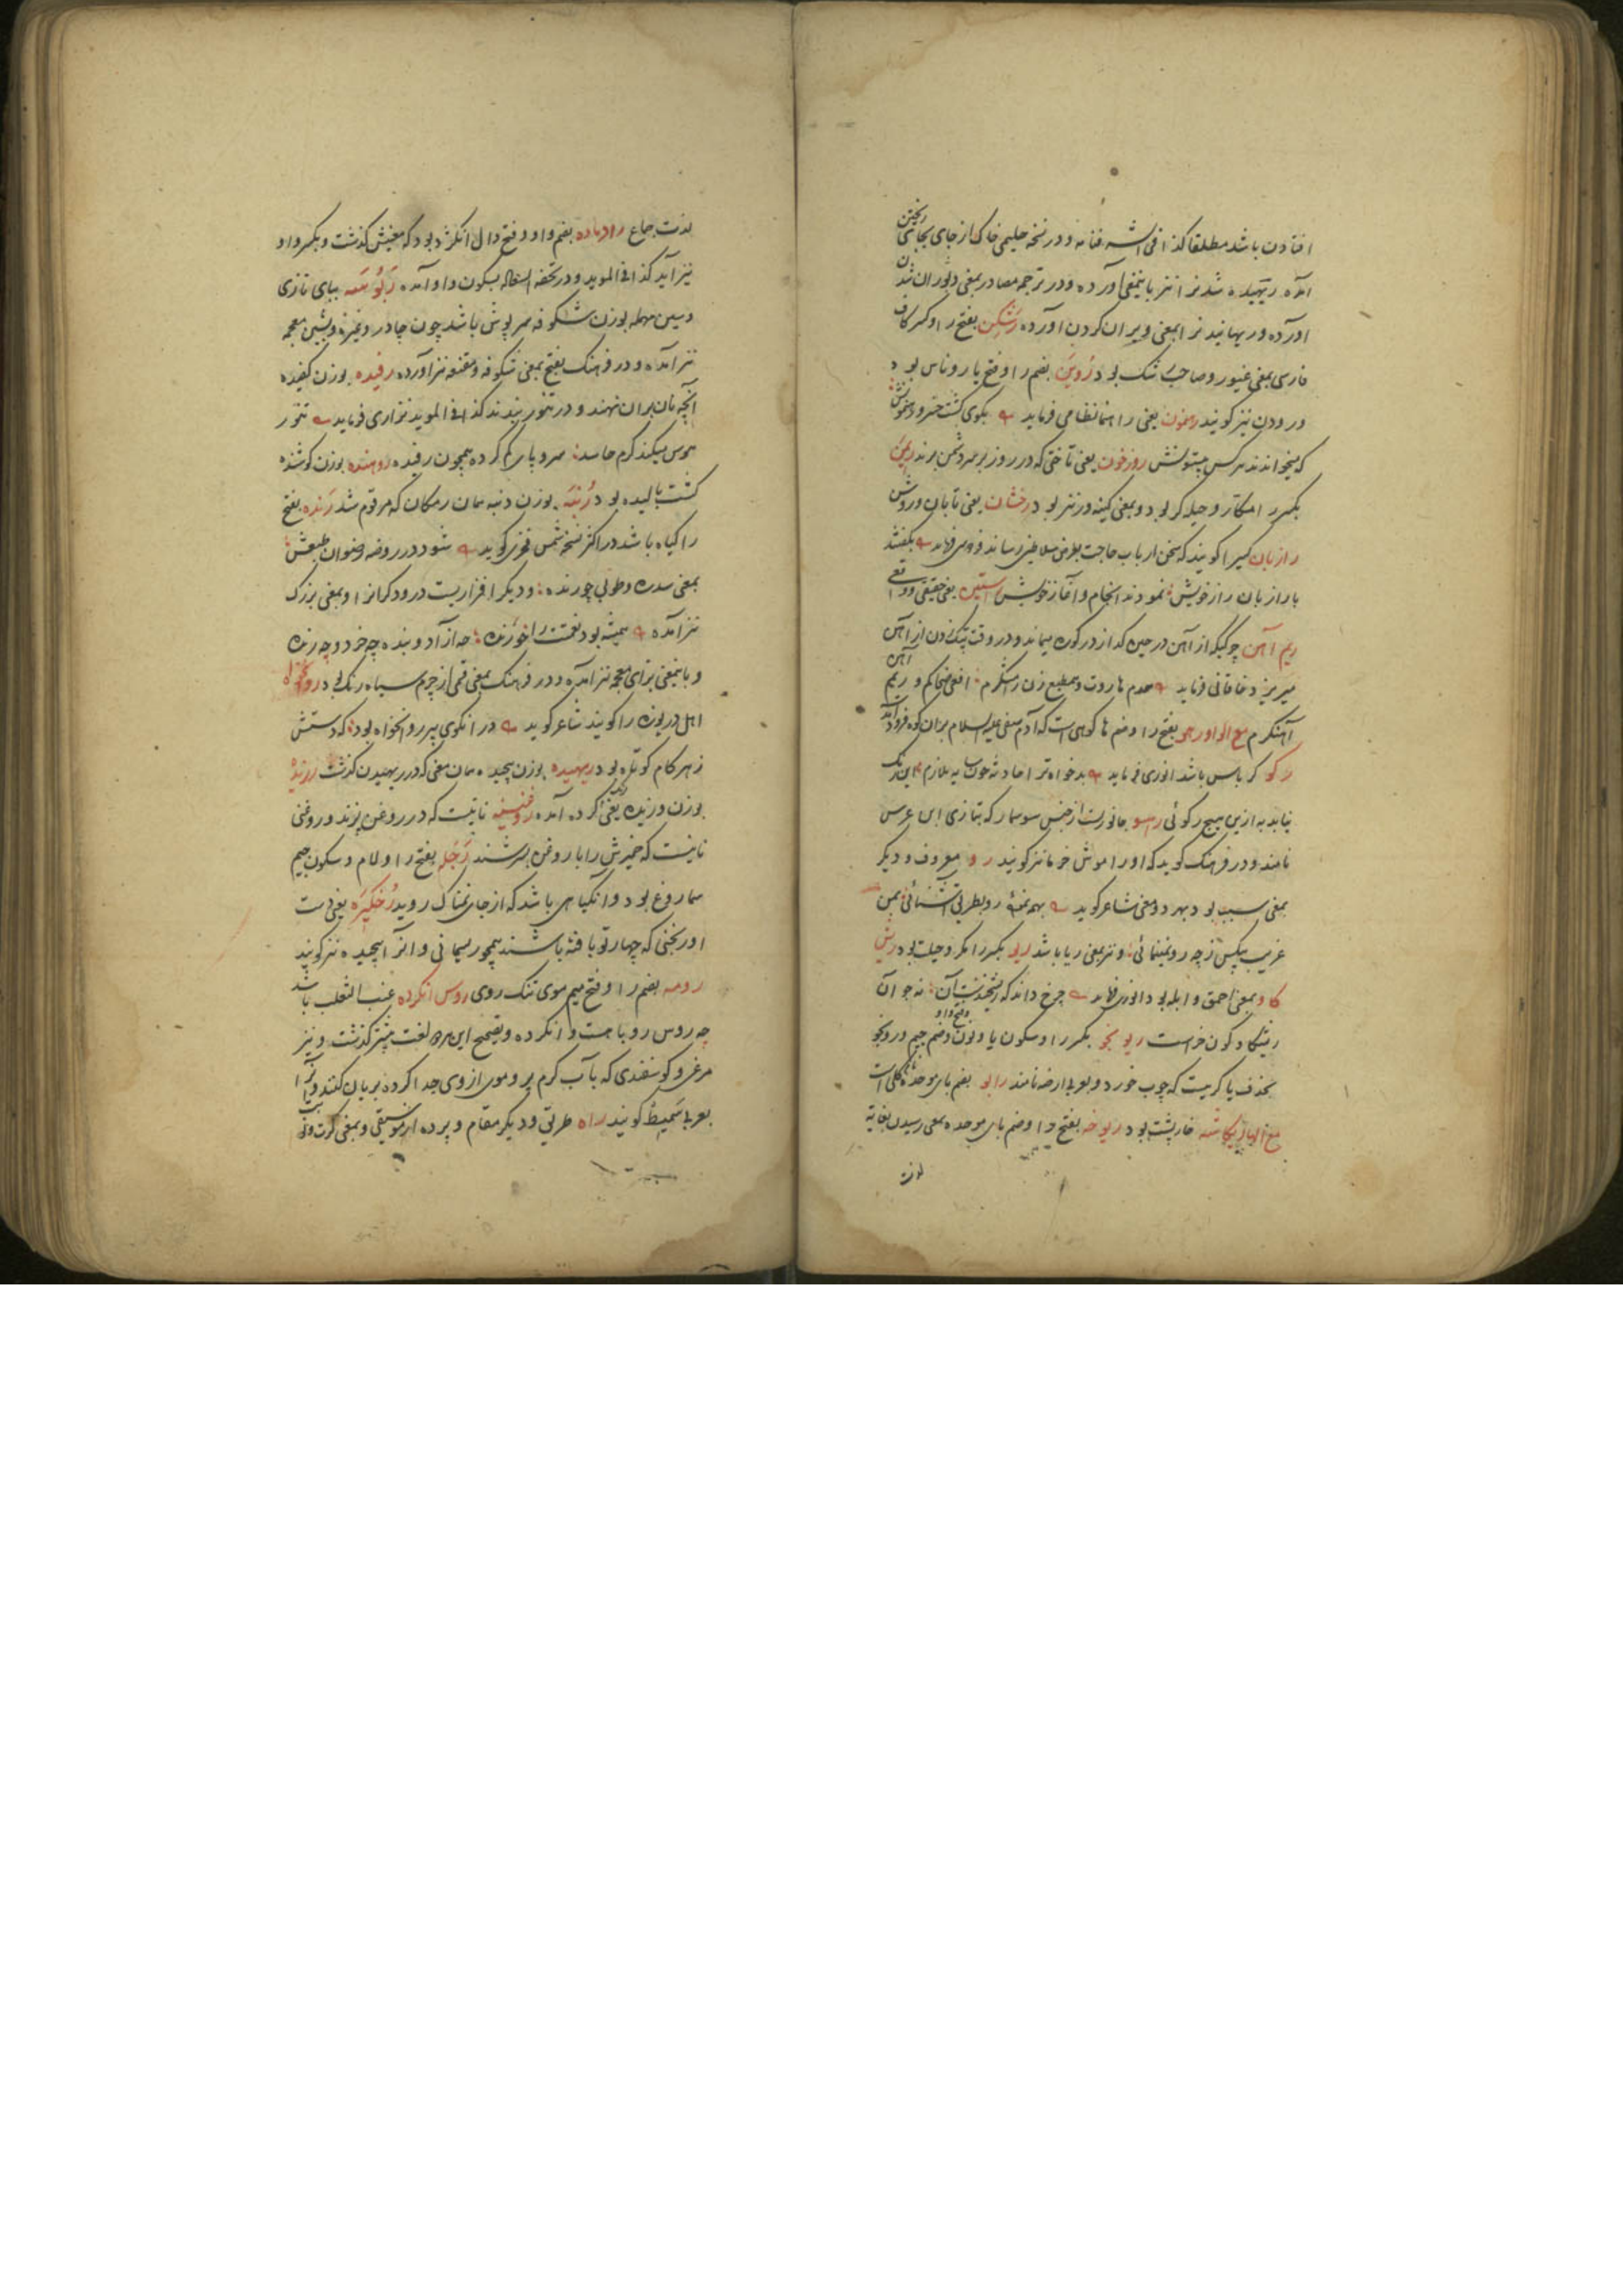 افتادن باشد مطلقا کذا فی و در نسخه حلیمی خاک از جای بجای ریختن
آمده ریهیده شد نیز باینمعنی آورده و در ترجمه مصادر بمعنی ویران شدن
آورده و ریهانید نیز بمعنی ویران کردن آورده رشکن بفتح را و کسر کاف
فارسی بمعنی غیور و صاحب رشک بود روین بضم را و فتح یا روناس بود
و رودن نیز کویند رهنمون یعنی راهنما نظامی فرماید بکوی کشت خسرو رهنمونش
که میخواندند هر کس بیستونش روزخون یعنی تاختی که در روز بر سر دشمن برند ریمن
بکسر را مکار و حیله کر بود و بمعنی کینه ور نیز بود رخشان یعنی تابان و روشن
رازبان کسیرا کویند که سخن ارباب حاجت بعرض سلاطین رساند فردوسی فرماید بکفتند
با رازبان راز خویش نمودند انجام و آغاز خویش راستین یعنی حقیقی و واقعی
ریم آهن چرکیکه از آهن در حین کداز در کوره میماند و در وقت پتک زدن از آهن
میریزد خاقانی فرماید همدم هاروت و هم طبع زن رامشکرم افعی ضحاکم و ریم آهن
آهنکرم مع الواو رهو بفتح را و ضم ها کوهی است که آدم صفی علیه السلام بران کوه فرود آمد
رکو کرباس باشد انوری فرماید بدخواه ترا حادثه چون سایه ملازم این رنک
نیابد به ازین هیچ رکوئی راسو جانوریست از جنس سوسمار که بتازی ابن عرس
نامند و در فرهنک کوید که او را موش خرما نیز کویند رو معروف و دیکر
بمعنی سبب بود بهر دو معنی شاعر کوید آشنائی بمن
غریب بیکس ز چه رو نمینمائی و نیز بمعنی ریا باشد ریو بکسر را مکر و حیلت بود ریش
کاو بمعنی احمق و ابله بود انوری فرماید چرخ داند که ریشخندست آن نه جو آن
ریشکاو کون خرست ریونجو بکسر را و سکون یا و نون و ضم جیم و رونجو
بحذف یا کرمیست که چوب خورد و بعربی ارضه نامند رابو بضم بای موحده کلی است
مع الهاء ریکاشه خارپشت بود ریوخه بفتح را و ضم بای موحده بمعنی رسیدن بغایه
لذت
لذت جماع رادماده بضم واو و فتح دال انکژد بود که معنیش کذشت و بکسر واو
نیز آید کذا فی الموید و در تحفه السعاده بسکون واو آمده ربوسه ببای تازی
و سین مهمله بوزن شکوفه سرپوش باشد چون چادر و غیره و بشین معجمه
نیز آمده و در فرهنک بفتح بمعنی شکوفه و مقنعه نیز آورده رفیده بوزن کفیده
آنچه نان بران نهند و در تنور بندند کذا فی الموید نزاری فرماید تنور
هوس میکند کرم حاسد سر و پای کم کرده همچون رفیده روهنده بوزن کوشنده
کشت بالیده بود رنبه بوزن دنبه همان رمکان که مرقوم شد رنده بفتح
را کیاه باشد در اکثر نسخه شمس فخری کوید شود در روضه رضوان طبعش
بمعنی سدره و طوبی چو رنده و دیکر افزاریست درودکرانرا و بمعنی بزرک
نیز آمده همیشه بود نعمتت را خورنده چه از آزاد و بنده چه خرد و چه رنده
و باینمعنی بزای معجمه نیز آمده و در فرهنک بمعنی قسمی از چرم سیاه رنک بود رونخواه
اهل دریوزه را کویند شاعر کوید در انکوی پیر رونخواه بود که دستش
ز هر کام کوتاه بود ریهیده بوزن پیچیده همان معنی که در ریهیدن کذشت رزیده
بوزن وزیده یعنی رنک کرده آمده روغنینه نانیست که در روغن پزند و روغنی
نانیست که خمیرش را با روغن سرشند رجله بفتح را و لام و سکون جیم
سماروغ بود و آن کیاهی باشد که از جای نمناک روید رخکیزه یعنی
آورنجنی که چهار تو بافته باشند همچو ریسمانی و آنرا پیچیده نیز کویند
رومه بضم را و فتح میم موی تنک روی روس انکرده عنب الثعلب باشد
چه روس روباهست و انکرده و تصحیح این هر دو لغت پیشتر کذشت و نیز
مرغی و کوسفندی که بآب کرم پر و موی از وی جدا کرده بریان کنند و آنرا
بعربی سمیط کویند راه طریق و دیکر مقام و پرده از موسیقی و بمعنی کرت و نوبت